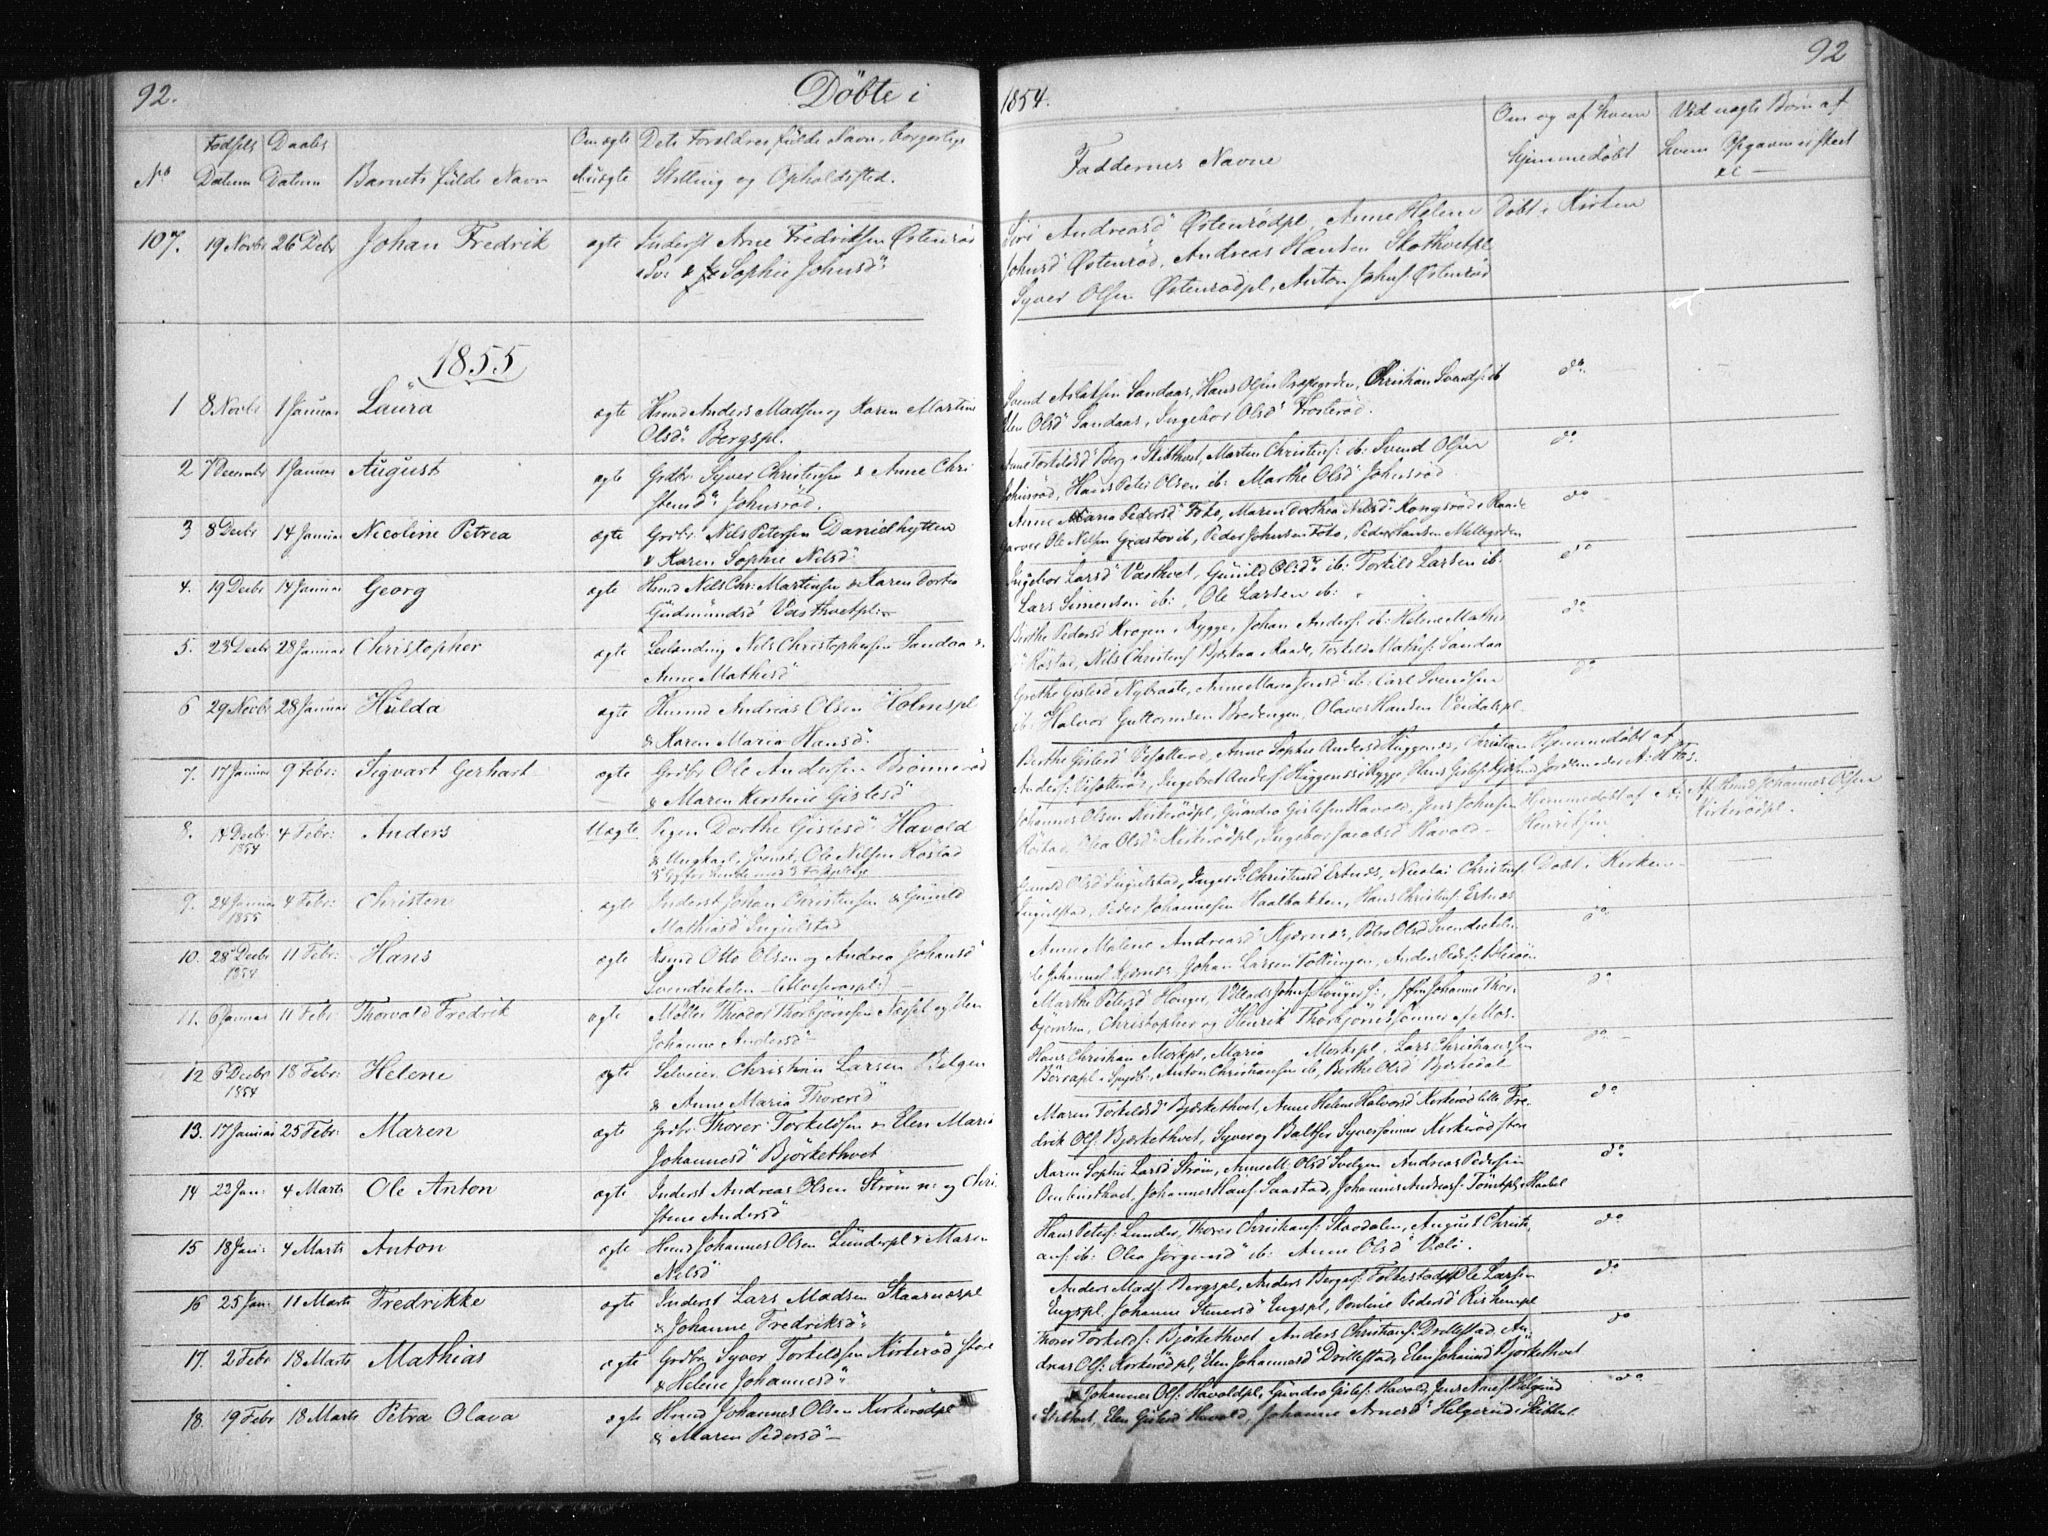 92.
Döbte i
1854.
92
No
Fødsels Datum
Daabs Datum
Barnets fulde Navn
Om ægte Auægte
Dets Forældres fulde Navn, borgerlige Stilling og Opholdssted.
Faddernes Navne
Om og af hvem hjemmedøbt
Ved uægte Børn af hvem Opgaven er skeet
107. 19 Novbr 26 Debr Johan Fredrik ægte Inderst Arne Fredriksen Østenrød
& Sophie Johnsd:
Siri Andreasd Østenrødpl, Anne Helene Døbt i Kirken
Johnsd Østenrød, Andreas Hansen Skothvetpl
Syver Olsen Østenrødpl, Anton Johns. Østenrød
1855
1 8 Novbr 1 Januar Laura ægte Husmd Anders Madsen og Karen Martine
Olsd: Bergspl.
Svend Aslaksen Sandaas, Hans Olsen Præstegrden, Christian Svends: ib
Elen Olsd Sandaas, Ingebor Olsd Trosterød. do
2 7 Decembr 1 Januar August ægte Grdbr Syver Christensen & Anne Chri
stensd: Johnsrød.
Anne Torkildsd Berg i Skibthvet, Marten Christens: ib: Svend Olsen do
Johnsrød, Hans Peter Olsen ib: Marthe Olsd Johnsrød
3 8 Decbr 14 Januar Nicoline Petrea ægte Grdbr: Nils Petersen Danielhytten
& Karen Sophie Nilsd:
Anne Maria Pedersd Foto, Maren Dorthea Nilsd: Kongsrød i Raade do
Garver Ole Nilsen ib, Peder Johnsen Foto, Peder Hansen Mellegrden
4. 19 Decbr 14 Januar Georg ægte Husmd Nils Chr: Martinsen & Karen Dortea
Gudmundsd Vasthvetpl:
Ingebor Larsd Vasthvet, Gunild Olsd: ib: Torkild Larsen ib: do
Lars Simensen ib:, Ole Larsen ib:
5. 23 Decbr 28 Januar Christopher ægte Leilænding Nils Christophersen Sandaa &
Anne Mathisd
Birthe Pedersd Krogen i Rygge, Johan Anders: ib: Helene Mathis do
Røstad, Nils Christens Raade, Torkild Mathis: Sandaa
6 29 Novbr 28 Januar Hulda ægte Husmd Andreas Olsen Holmspl
& Karen Maria Hansd:
Grethe Gislesd Nybraate, Anne Maria Jensd ib: Carl Svendsen do
ib: Halvor Guttormsen Bredengen, Olaves Hansen Veidalspl
7. 17 Januar 9 Febr: Sigvart Gerhart ægte Grdbr Ole Andersen Brønnerød
& Maren Kirstine Gislesd
Berthe Gislesd, Anne Sophie Andersd Huggenes, Christian Hjemmedøbt af
Anders:, Ingebret Anders: Huggenes i Rygge, Hans Gisles: Jordemoder
8. 14 Decbr 1854 4 Febr: Anders Uægte Pigen Dorthe Gislesd Havold
& Ungkarl, Svensk, Ole Nilsen Røstad
Johannes Olsen Kirkerødpl, Gundro Gislesen Havold, Jens Johnsen Hjemmedøbt af A: Henriksen
Røstad, Olea Olsd Kirkerødpl, Ingebor Jacobsd Havold
Af Husmd Johannes Olsen Kirkerødpl.
9. 24 Januar 1855 4 Febr: Christen ægte Inderst Johan Christensen & Gunild
Mathiasd Ingulstad
Gunild Olsd Ingulstad, Inger Christensd Ertnæs, Nicolai Christens: Døbt i Kirken
Ingulstad, Peder Johannesen Haalbakken, Hans Christens: Ertnæs
10. 28 Decbr 1854 11 Febr: Hans ægte Husmd Otto Olsen og Andrea Johansd
Anne Malene Andreasd Kjærnæs, Petra Olsd do
Johannes Kjærnæs, Johan Larsen Tottingen, Anders
11. 6 Januar 11 Febr: Thorvald Fredrik ægte Møller Theodor Thorbjörnsen Næspl og Elen
Johanne Andersd
Marthe Petersd, Jfr Johanne Thor- do
bjørnsen, Christopher og Henrik Thorbjørnssønner af Mos.
12 6 Decbr 1854 18 Febr: Helene ægte Selveier Christian Larsen Bolgen
& Anne Maria Thoresd
Hans Christian Morkpl, Maria Morkspl, Lars Christiansen do
Anton Christiansen ib, Berthe Olsd
13. 17 Januar 25 Febr: Maren ægte Grdbr: Thorer Torkildsen & Elen Maria
Johannesd Bjørkethvet
Maren Torkildsd Bjørkethvet, Anne Helene Halvorsd Kirkerød lille Fre- do
drik Ols: Bjørkethvet, Syver og Balthser Syversønner Kirkerød store
14 22 Jan: 4 Marts Ole Anton ægte Inderst Andreas Olsen Strøm n: og Chri
stine Andersd
Karen Sophie Larsd Strøm, Anne M: Olsd Svelgen Andreas Pedersen do
Johannes Hans: Saastad, Johannes Andreas: Haabøl
15 18 Jan: 4 Marts Anton ægte Husmd Johannes Olsen Lunderpl & Maren
Nilsd
Hans Peters: Lunder, Thorer Christians: Skaodalen, August Christi- do
ans: ib: Olea Jørgensd ib: Anne Olsd
16 25 Jan: 11 Marts Fredrikke ægte Inderst Lars Madsen Skaarnæspl
& Johanne Fredriksd:
Anders Mads: Bergspl, Anders Bergs: Folkestad, Ole Larsen do
Engspl, Johanne Stenersd Engspl, Pouline Pedersd
17. 2 Febr 18 Marts Mathias ægte Grdbr Syver Torkildsen Kirkerød store
& Helene Johannesd:
Thorer Torkilds: Bjørkethvet, Anders Christians: Drillestad, An- do
dreas Ols: Kirkerødpl, Elen Johannesd Drillestad, Elen Johannesd Bjørkethvet
18. 19 Febr 18 Marts Petra Olava ægte Husmd Johannes Olsen Kirkerødpl
& Maren Pedersd
Johannes Ols: Havoldpl, Gundro Gisles: Havold, Jens Arnes: Helgerud do
i Skibthvet, Elen Gislesd Havold, Johanne Arnesd Helgerud i Skibthvet